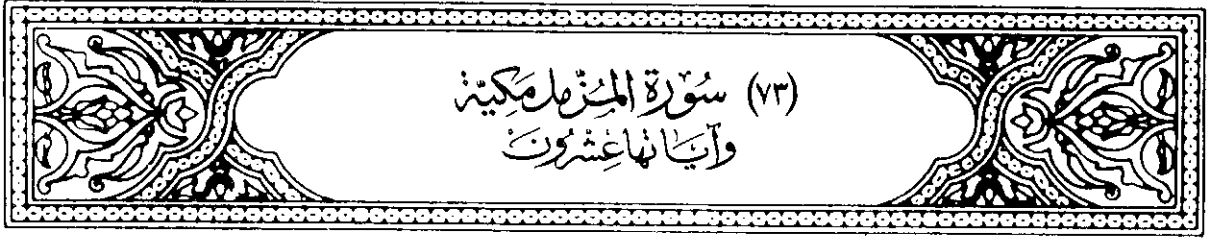 (٧٣) سُورَة المُزَّمل مَكيَّة
وَآيَاتهَا عِشْرُونَ